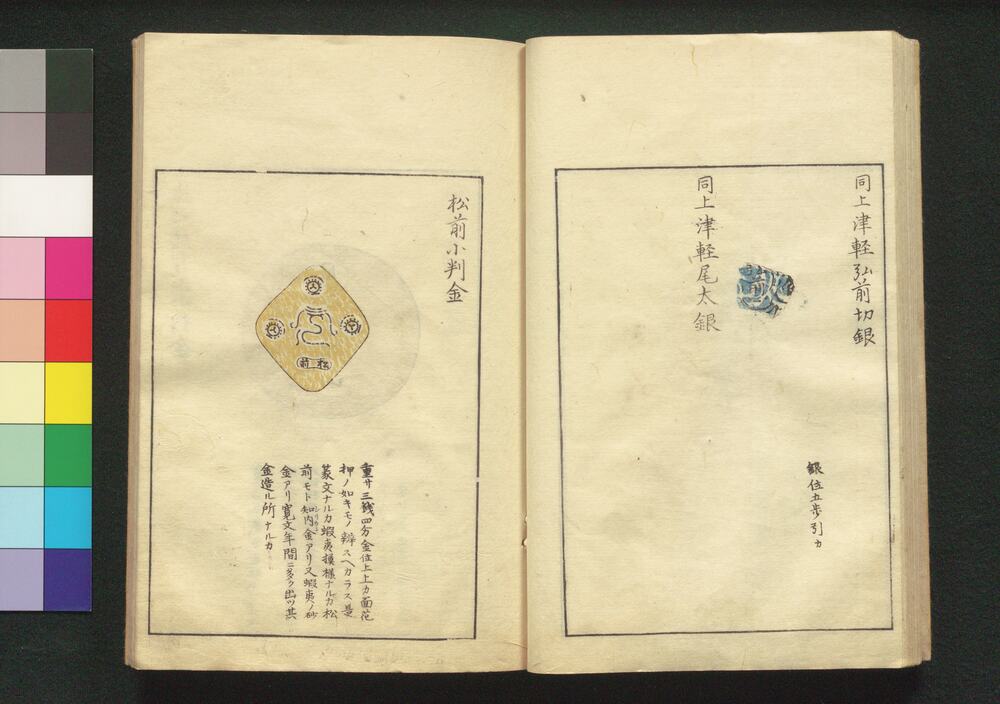 同上津軽弘前切銀
銀位五歩引カ
同上津軽尾太銀
松前小判金
松前
重サ三銭四分金位上上カ面花
押ノ如キモノ辨スヘカラス是
篆文ナルカ蝦夷模様ナルカ松
前モト知内金アリ又蝦夷ノ砂
金アリ寛文年間ニ多ク出ツ其
金造ル所ナルカ